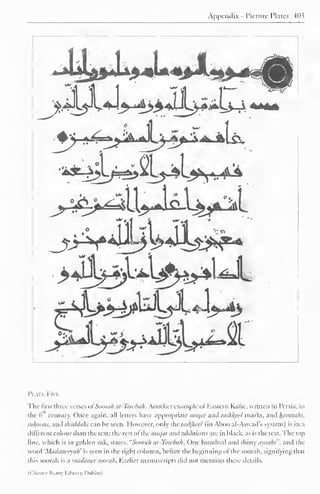 Appendix - Picture Plates 405
براءة من الله ورسوله الى الذين
عاهدتم من المشركين
فسيحوا في الارض اربعة
اشهر واعلموا انكم غير
معجزي الله وان الله مخزي
الكفرين واذان من الله و
رسوله الى الناس يوم الحج
الاكبر ان الله بريء من
PLATE FIVE
The first three verses of Soorah at-Tawbah. Another example of Eastern Kufic, written in Persia, in
the 6th century. Once again, all letters have appropriate nuqat and tashkeel marks, and hamzahs,
sukoons, and shaddahs can be seen. However, only the tashkeel (in Aboo al-Aswad's system) is in a
different colour than the text; the rest of the nuqat and additions are in black, as is the text. The top
line, which is in golden ink, states, "Soorah at-Tawbah, One hundred and thirty ayaahs", and the
word 'Madaneeyah' is seen in the right column, before the beginning of the soorah, signifying that
this soorah is a madanee soorah. Earlier manuscripts did not mention these details.
(Chester Beatty Library, Dublin)